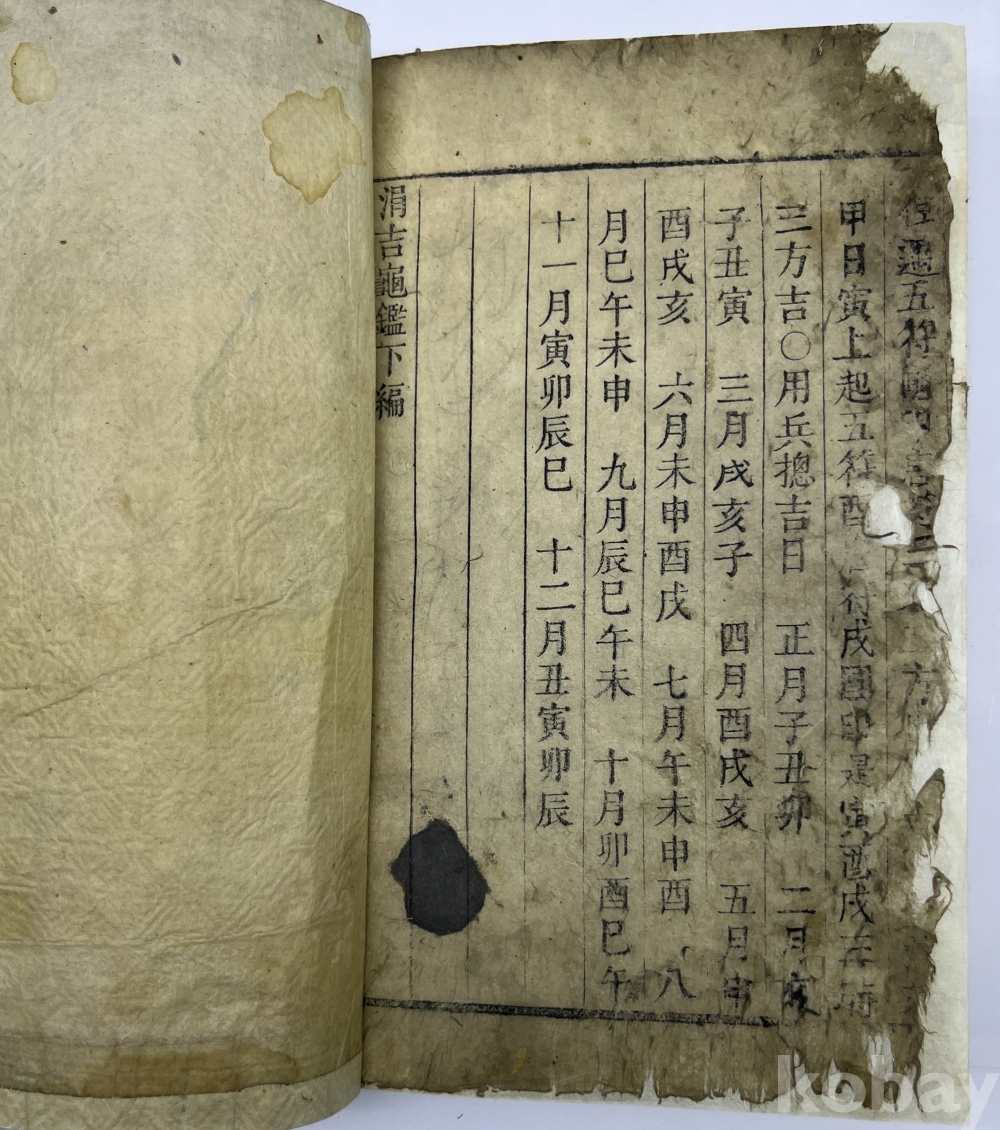 遇五符
甲日寅上起五符酉 符戌國印是寅酉戌
三方吉○用兵摠吉日 正月子丑卯 二月亥
子丑寅 三月戌亥子 四月酉戌亥 五月申
酉戌亥 六月未申酉戌 七月午未申酉 八
月巳午未申 九月辰巳午未 十月卯酉巳午
十一月寅卯辰巳 十二月丑寅卯辰
涓吉龜鑑下編
kobay